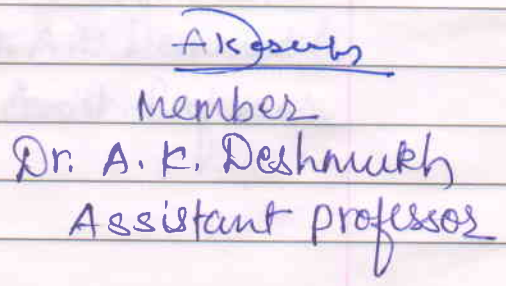 Member
Dr. A. K. Deshmukh
Assistant professor